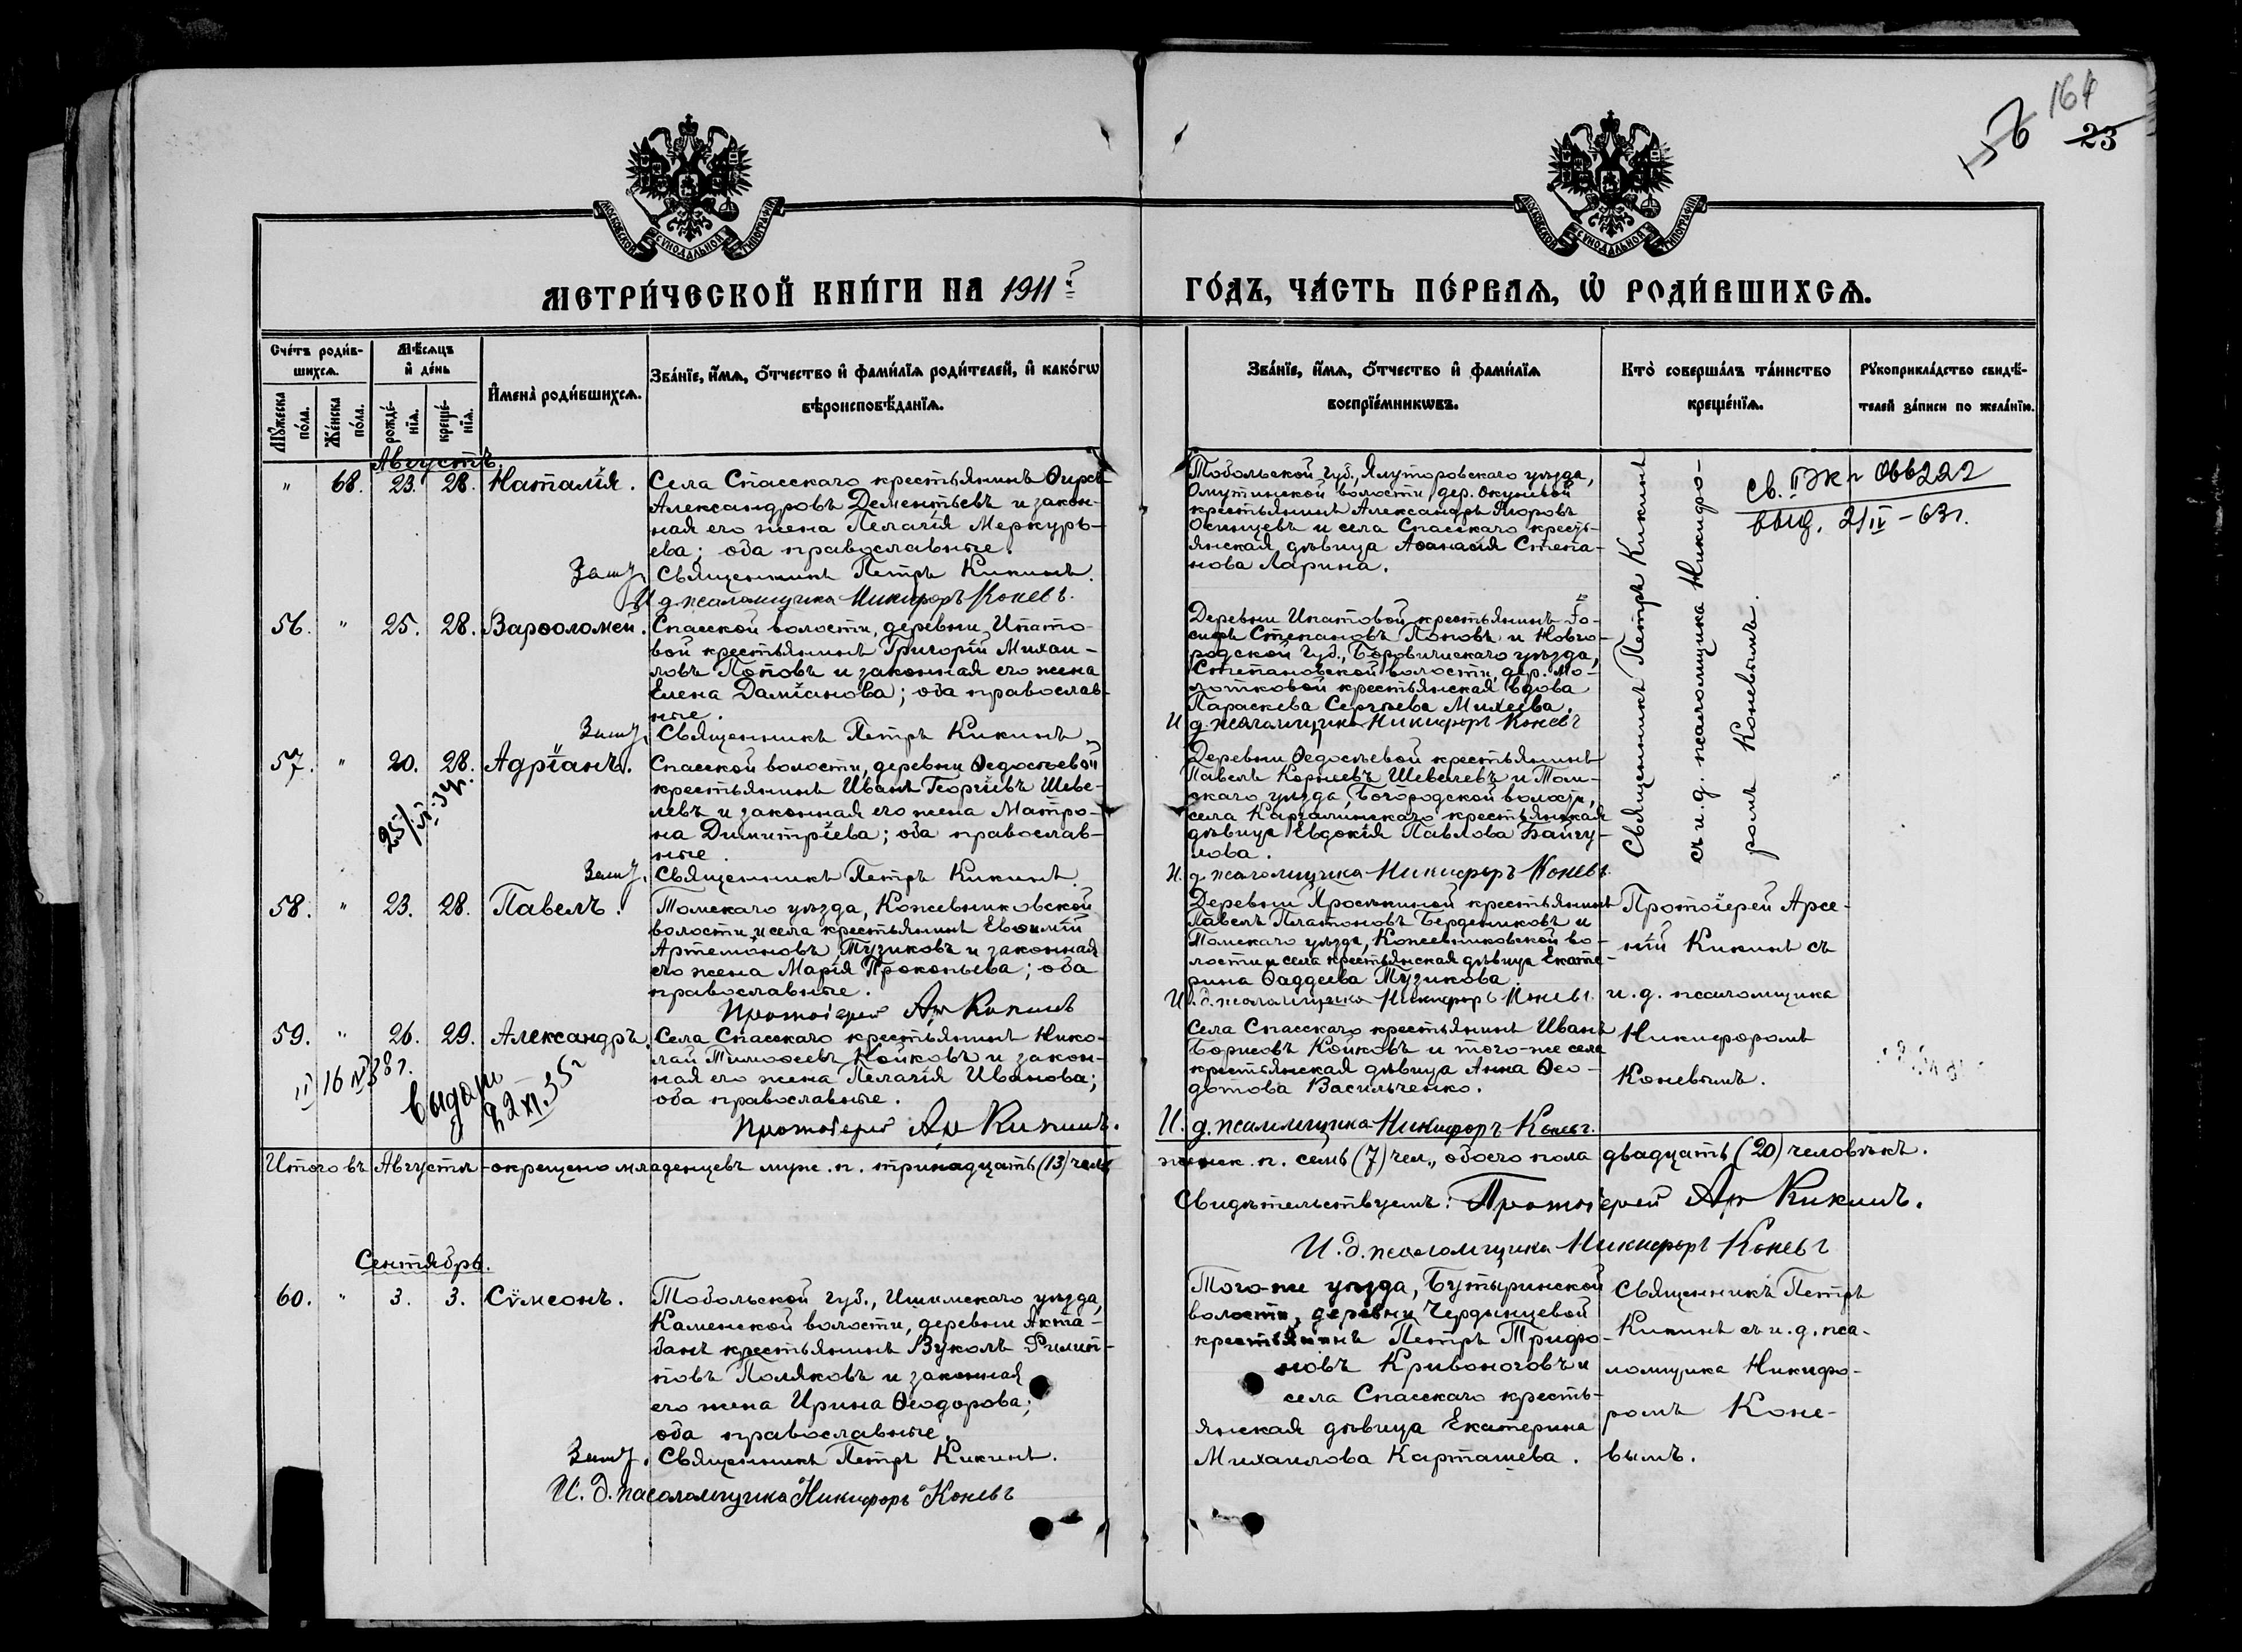 164
156
23
МОСКОВСКОЙ СѴНОДАЛЬНОЙ ТИПОГРАФІИ
МОСКОВСКОЙ СѴНОДАЛЬНОЙ ТИПОГРАФІИ
МЕТРИ́ЧЕСКОЙ КНИ́ГИ НА 1911 г
ГО́ДЪ, ЧА́СТЬ ПЕ́РВАѦ, Ѡ҆ РОДИ́ВШИХСѦ.
Сче́тъ роди́в-
шихсѧ.
Мꙋ́жеска по́ла.
Же́нска по́ла.
Мѣ́сѧцъ
и҆ де́нь
рожде́-
нїѧ.
креще́-
нїѧ.
И҆мена̀ роди́вшихсѧ.
Зва́нїе, и҆́мѧ, ѻ҆́тчество и҆ фами́лїѧ роди́телей, и҆ како́гѡ
вѣроисповѣ́данїѧ.
Зва́нїе, и҆́мѧ, ѻ҆́тчество и҆ фами́лїѧ
воспрїе́мникѡвъ.
Кто̀ соверша́лъ та́инство
креще́нїѧ.
Рꙋкоприкла́дство свидѣ́-
телей за́писи по жела́нїю.
Августъ.
" 68. 23. 28. Наталія.
Села Спасскаго крестьянинъ Ѳирсъ
Александровъ Дементьевъ и закон-
ная его жена Пелагія Меркурь-
ева; оба православные.
Священникъ Петръ Кикинъ.
И д псаломщика Никифоръ Коневъ.
Тобольской губ., Ялуторовскаго уѣзда,
Омутинской волости, дер. Окуневой
крестьянинъ Александръ Егоровъ
Осинцевъ и села Спасскаго кресть-
янская дѣвица Аѳанасія Степа-
нова Ларина.
Священникъ Петръ Кикинъ
съ и. д. псаломщика Никифо-
ромъ Коневымъ.
св. II ЖА 066222
выд. 2/IV – 63 г.
56. " 25. 28. Варѳоломей.
Спасской волости, деревни Ипато-
вой крестьянинъ Григорій Михаи-
ловъ Поповъ и законная его жена
Елена Даміанова; оба православ-
ные.
Священникъ Петръ Кикинъ
Деревни Ипатовой крестьянинъ Іо-
сифъ Степановъ Поповъ и Новго-
родской губ., Боровичискаго уѣзда,
Степановской волости, дер. Мо-
лотковой крестьянская вдова
Параскева Сергѣева Михеева.
И д. псаломщика Никифоръ Коневъ
57. " 20. 28. Адріанъ.
Спасской волости, деревни Ѳедосѣевой
крестьянинъ Иванъ Георгіевъ Шеве-
левъ и законная его жена Матро-
на Димитріева; оба православ-
ные.
Священникъ Петръ Кикинъ.
Деревни Ѳедосѣевой крестьянинъ
Павелъ Корнѣевъ Шевелевъ и Том-
скаго уѣзда, Богородской волости,
села Каргалинскаго крестьянская
дѣвица Евдокія Павлова Байгу-
лова.
И. д. псаломщика Никифоръ Коневъ.
58. " 23. 28. Павелъ.
Томскаго уѣзда, Кожевниковской
волости и села крестьянинъ Евѳимій
Артемоновъ Тузиковъ и законная
его жена Марія Прокопьева; оба
православные.
Протоіерей Ар Кикинъ
Деревни Яроськиной крестьянинъ
Павелъ Платоновъ Бердениковъ и
Томскаго уѣзда, Кожевниковской во-
лости и села крестьянская дѣвица Екате-
рина Ѳаддеева Тузикова.
И. д. псаломщика Никифоръ Коневъ.
Протоіерей Арсе-
ній Кикинъ съ
и. д. псаломщика
Никифоромъ
Коневымъ.
59. " 26. 29. Александръ.
Села Спасскаго крестьянинъ Нико-
лай Тимоѳеевъ Койковъ и закон-
ная его жена Пелагія Иванова;
оба православные.
Протоіерей Ар Кикинъ.
16 IV 38 г.
выдано
22 XI. 35 г
Села Спасскаго крестьянинъ Иванъ
Борисовъ Койковъ и того-же села
крестьянская дѣвица Анна Ѳео-
дотова Васильченко.
И. д. псаломщика Никифоръ Коневъ.
Итого въ Августѣ окрещено младенцевъ муж. п. тринадцать (13) чел.
женск. п. семь (7) чел., обоего пола двадцать (20) человѣкъ.
Свидѣтельствуемъ: Протоіерей Ар Кикинъ.
И. д. псаломщика Никифоръ Коневъ
Сентябрь.
60. " 3. 3. Сѵмеонъ.
Тобольской губ., Ишимскаго уѣзда,
Каменской волости, деревни Акта-
банъ крестьянинъ Вуколъ Филип-
повъ Поляковъ и законная
его жена Ирина Ѳеодорова;
оба православные.
Священникъ Петръ Кикинъ.
И. д. псаломщика Никифоръ Коневъ
Того-же уѣзда, Бутыринской
волости, деревни Чердынцевой
крестьянинъ Петръ Трифо-
новъ Кривоноговъ и
села Спасскаго кресть-
янская дѣвица Екатерина
Михаилова Карташева.
Священникъ Петръ
Кикинъ съ и. д. пса-
ломщика Никифо-
ромъ Коне-
вымъ.